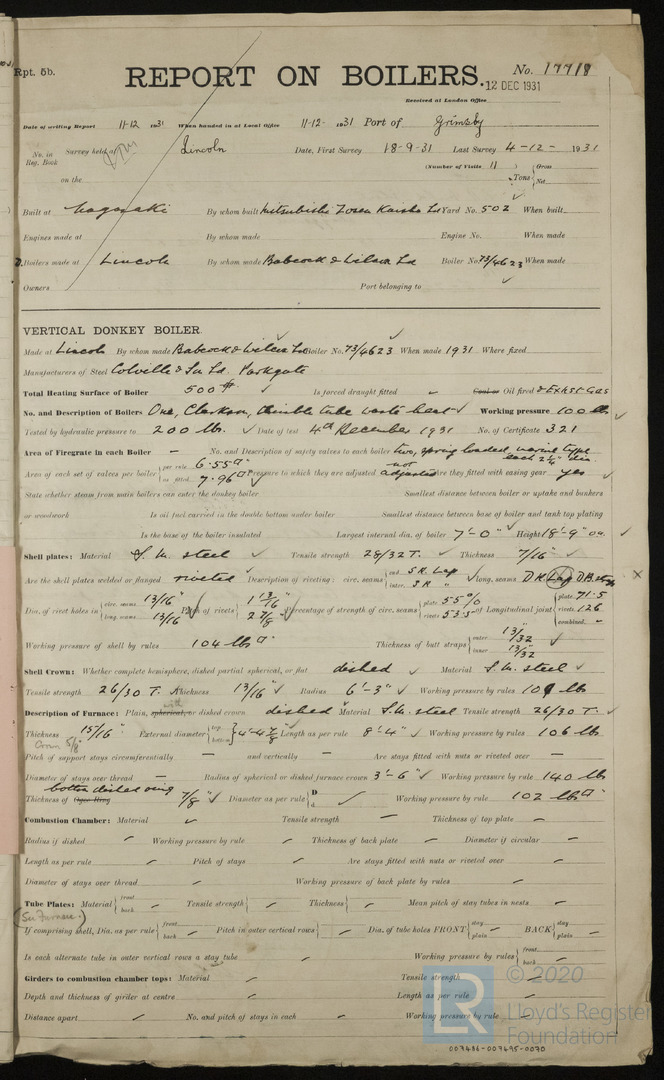 Rpt. 5b.
REPORT ON BOILERS.
No. 17718
12 DEC 1931
Received at London Office
Date of writing Report 11-12 1931 When handed in at Local Office 11-12- 1931 Port of Grimsby
No. in Reg. Book Survey held at Lincoln Date, First Survey 18-9-31 Last Survey 4-12- 1931
(Number of Visits 11 )
on the Tons { Gross Net
Built at Nagasaki By whom built Mitsubishi Zosen Kaisha Ld Yard No. 502 When built
Engines made at By whom made Engine No. When made
D. Boilers made at Lincoln By whom made Babcock & Wilcox Ld Boiler No. 73/4623 When made
Owners Port belonging to
VERTICAL DONKEY BOILER.
Made at Lincoln By whom made Babcock & Wilcox Ld Boiler No. 73/4623 When made 1931 Where fixed
Manufacturers of Steel Colville & Sn Ld. Parkgate
Total Heating Surface of Boiler 500 Is forced draught fitted Coal or Oil fired & Exhst Gas
No. and Description of Boilers One, Clarkson, thimble tube waste heat Working pressure 100 lb
Tested by hydraulic pressure to 200 lb. Date of test 4th December 1931 No. of Certificate 321
Area of Firegrate in each Boiler — No. and Description of safety valves to each boiler two, spring loaded, marine type each 2¼" dia.
Area of each set of valves per boiler { per rule 6.55 as fitted 7.96 Pressure to which they are adjusted not adjusted Are they fitted with easing gear yes
State whether steam from main boilers can enter the donkey boiler Smallest distance between boiler or uptake and bunkers
or woodwork Is oil fuel carried in the double bottom under boiler Smallest distance between base of boiler and tank top plating
Is the base of the boiler insulated Largest internal dia. of boiler 7'-0" Height 18'-9" oa.
Shell plates: Material S. M. steel Tensile strength 28/32 T. Thickness 7/16"
Are the shell plates welded or flanged riveted Description of riveting: circ. seams { end S.R. Lap inter. S.R. " long. seams D.R. Lap D.B. straps
Dia. of rivet holes in { circ. seams 13/16" long. seams 13/16 Pitch of rivets { 1 13/16" 2 7/8" Percentage of strength of circ. seams { plate 55% rivets 53.5 of Longitudinal joint { plate 71.5 rivets 126 combined -
Working pressure of shell by rules 104 lb Thickness of butt straps { outer 13/32 inner 13/32
Shell Crown: Whether complete hemisphere, dished partial spherical, or flat dished Material S. M. steel
Tensile strength 26/30 T. Thickness 13/16" Radius 6'-3" Working pressure by rules 109 lb
Description of Furnace: Plain, spherical, or dished crown with dished Material S.M. steel Tensile strength 26/30 T.
Thickness 15/16" Crown 5/8" External diameter { top bottom } 4'-4 7/8 Length as per rule 8'-4" Working pressure by rules 106 lb
Pitch of support stays circumferentially — and vertically — Are stays fitted with nuts or riveted over —
Diameter of stays over thread — Radius of spherical or dished furnace crown 3'-6" Working pressure by rule 140 lb
Thickness of Ogee Ring bottom dished ring 7/8" Diameter as per rule { D d Working pressure by rule 102 lb
Combustion Chamber: Material Tensile strength Thickness of top plate
Radius if dished Working pressure by rule Thickness of back plate Diameter if circular
Length as per rule Pitch of stays Are stays fitted with nuts or riveted over
Diameter of stays over thread Working pressure of back plate by rules
Tube Plates: Material { front back Tensile strength { Thickness { Mean pitch of stay tubes in nests
(See Furnace.)
If comprising shell, Dia. as per rule { front back Pitch in outer vertical rows { Dia. of tube holes FRONT { stay plain BACK { stay plain
Is each alternate tube in outer vertical rows a stay tube Working pressure by rules { front back
Girders to combustion chamber tops: Material Tensile strength
Depth and thickness of girder at centre Length as per rule
Distance apart No. and pitch of stays in each Working pressure by rule
© 2020
Lloyd's Register
Foundation
007486-007495-0070